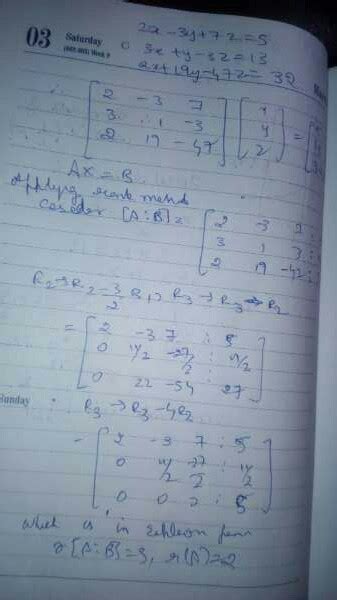 03 Saturday
2x - 3y + 7z = 5
3x + y - 3z = 13
2x + 19y - 47z = 32
∴ [ 2 -3 7
3 1 -3
2 19 -47 ] [ x
y
z ] =
AX = B
Applying rank method
Consider [A:B] =
[ 2 -3 7 :
3 1 3 :
2 19 -47 : ]
R2 → R2 - 3/2 R1, R3 → R3 → R2
= [ 2 -3 7 : 5
0 11/2 -27/2 : 11/2
0 22 -54 : 27 ]
Sunday
R3 → R3 - 4R2
= [ 2 -3 7 : 5
0 11/2 -27/2 : 11/2
0 0 0 : 5 ]
which is in echelon form
r[A:B] = 3, r(A) = 2